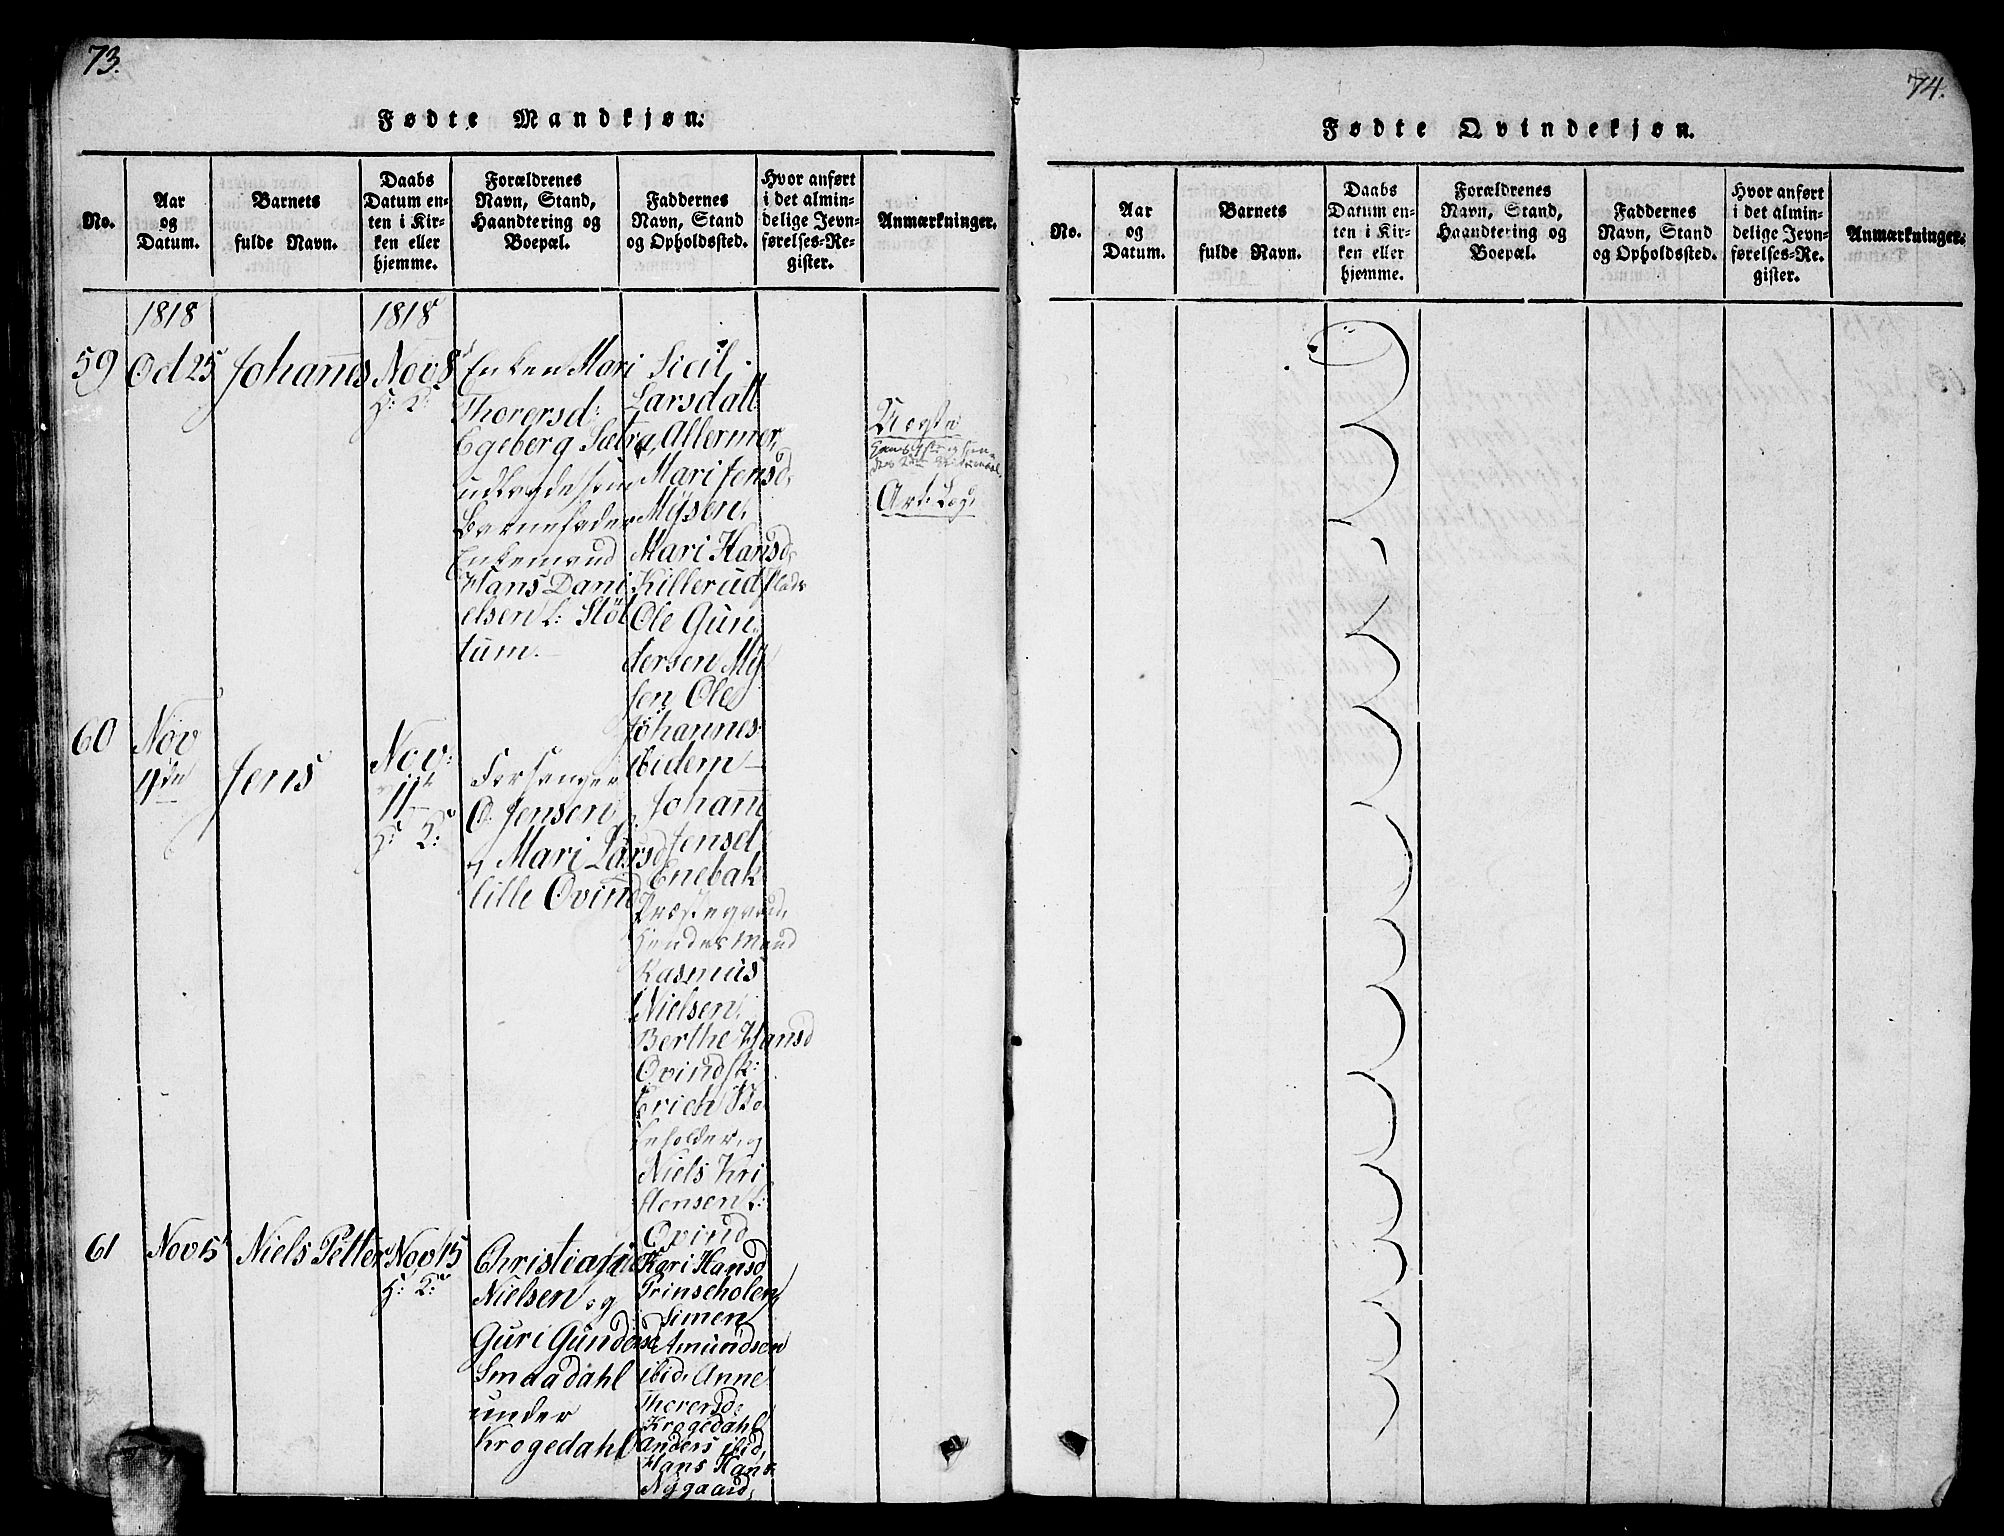 73.
Fødte Mandkjøn.
No.
Aar
og
Datum.
Barnets
fulde Navn.
Daabs
Datum en-
ten i Kir-
ken eller
hjemme.
Forældrenes
Navn, Stand,
Haandtering og
Boepæl.
Faddernes
Navn, Stand
og Opholdssted.
Hvor anført
i det almin-
delige Jevn-
førelses-Re-
gister.
Anmærkninger.
1818
1818
59
Oct 25
Johannes
Nov 8
H: K:
Enken Mari
Thorersd:
Egeberg Sætra,
udlagde som
Barnefader
Enkemand
Hans Dani
elsen L: Stöt
tum.
Sicil
Larsdatt
Allermor,
Mari Jensd,
Mysen,
Mari Hansd,
Killerud Plads
Ole Gun
dersen My
sen Ole
Johannes:
ibidem
Uægte
60
Nov
4de
Jens
Nov:
11te
H: K:
Forsanger
O. Jensen
og Mari Larsd
lille Qvind
Johann
Jensd,
Enebak
Præstegaard,
Hendes Mand
Rasmus
Nielsen,
Berthe Hansd
Qvindsk:
Erich Bo
eholder, og
Niels Kri
stensen L:
Qvind
61
Nov 5
Niels Petter
Nov 15
H: K:
Christian
Nielsen og
Guri Gunders
Smaadahl
under
Krogedahl
Kari Hansd
Prinseholen,
Simen
Amundsen
ibid, Anne
Thorersd:
Krogedahl
Anders ibid,
Hans Hans
Nygaard,
74.
Fødte Qvindekjøn.
No.
Aar
og
Datum.
Barnets
fulde Navn.
Daabs
Datum en-
ten i Kir-
ken eller
hjemme.
Forældrenes
Navn, Stand,
Haandtering og
Boepæl.
Faddernes
Navn, Stand
og Opholdssted.
Hvor anført
i det almin-
delige Jevn-
førelses-Re-
gister.
Anmærkninger.